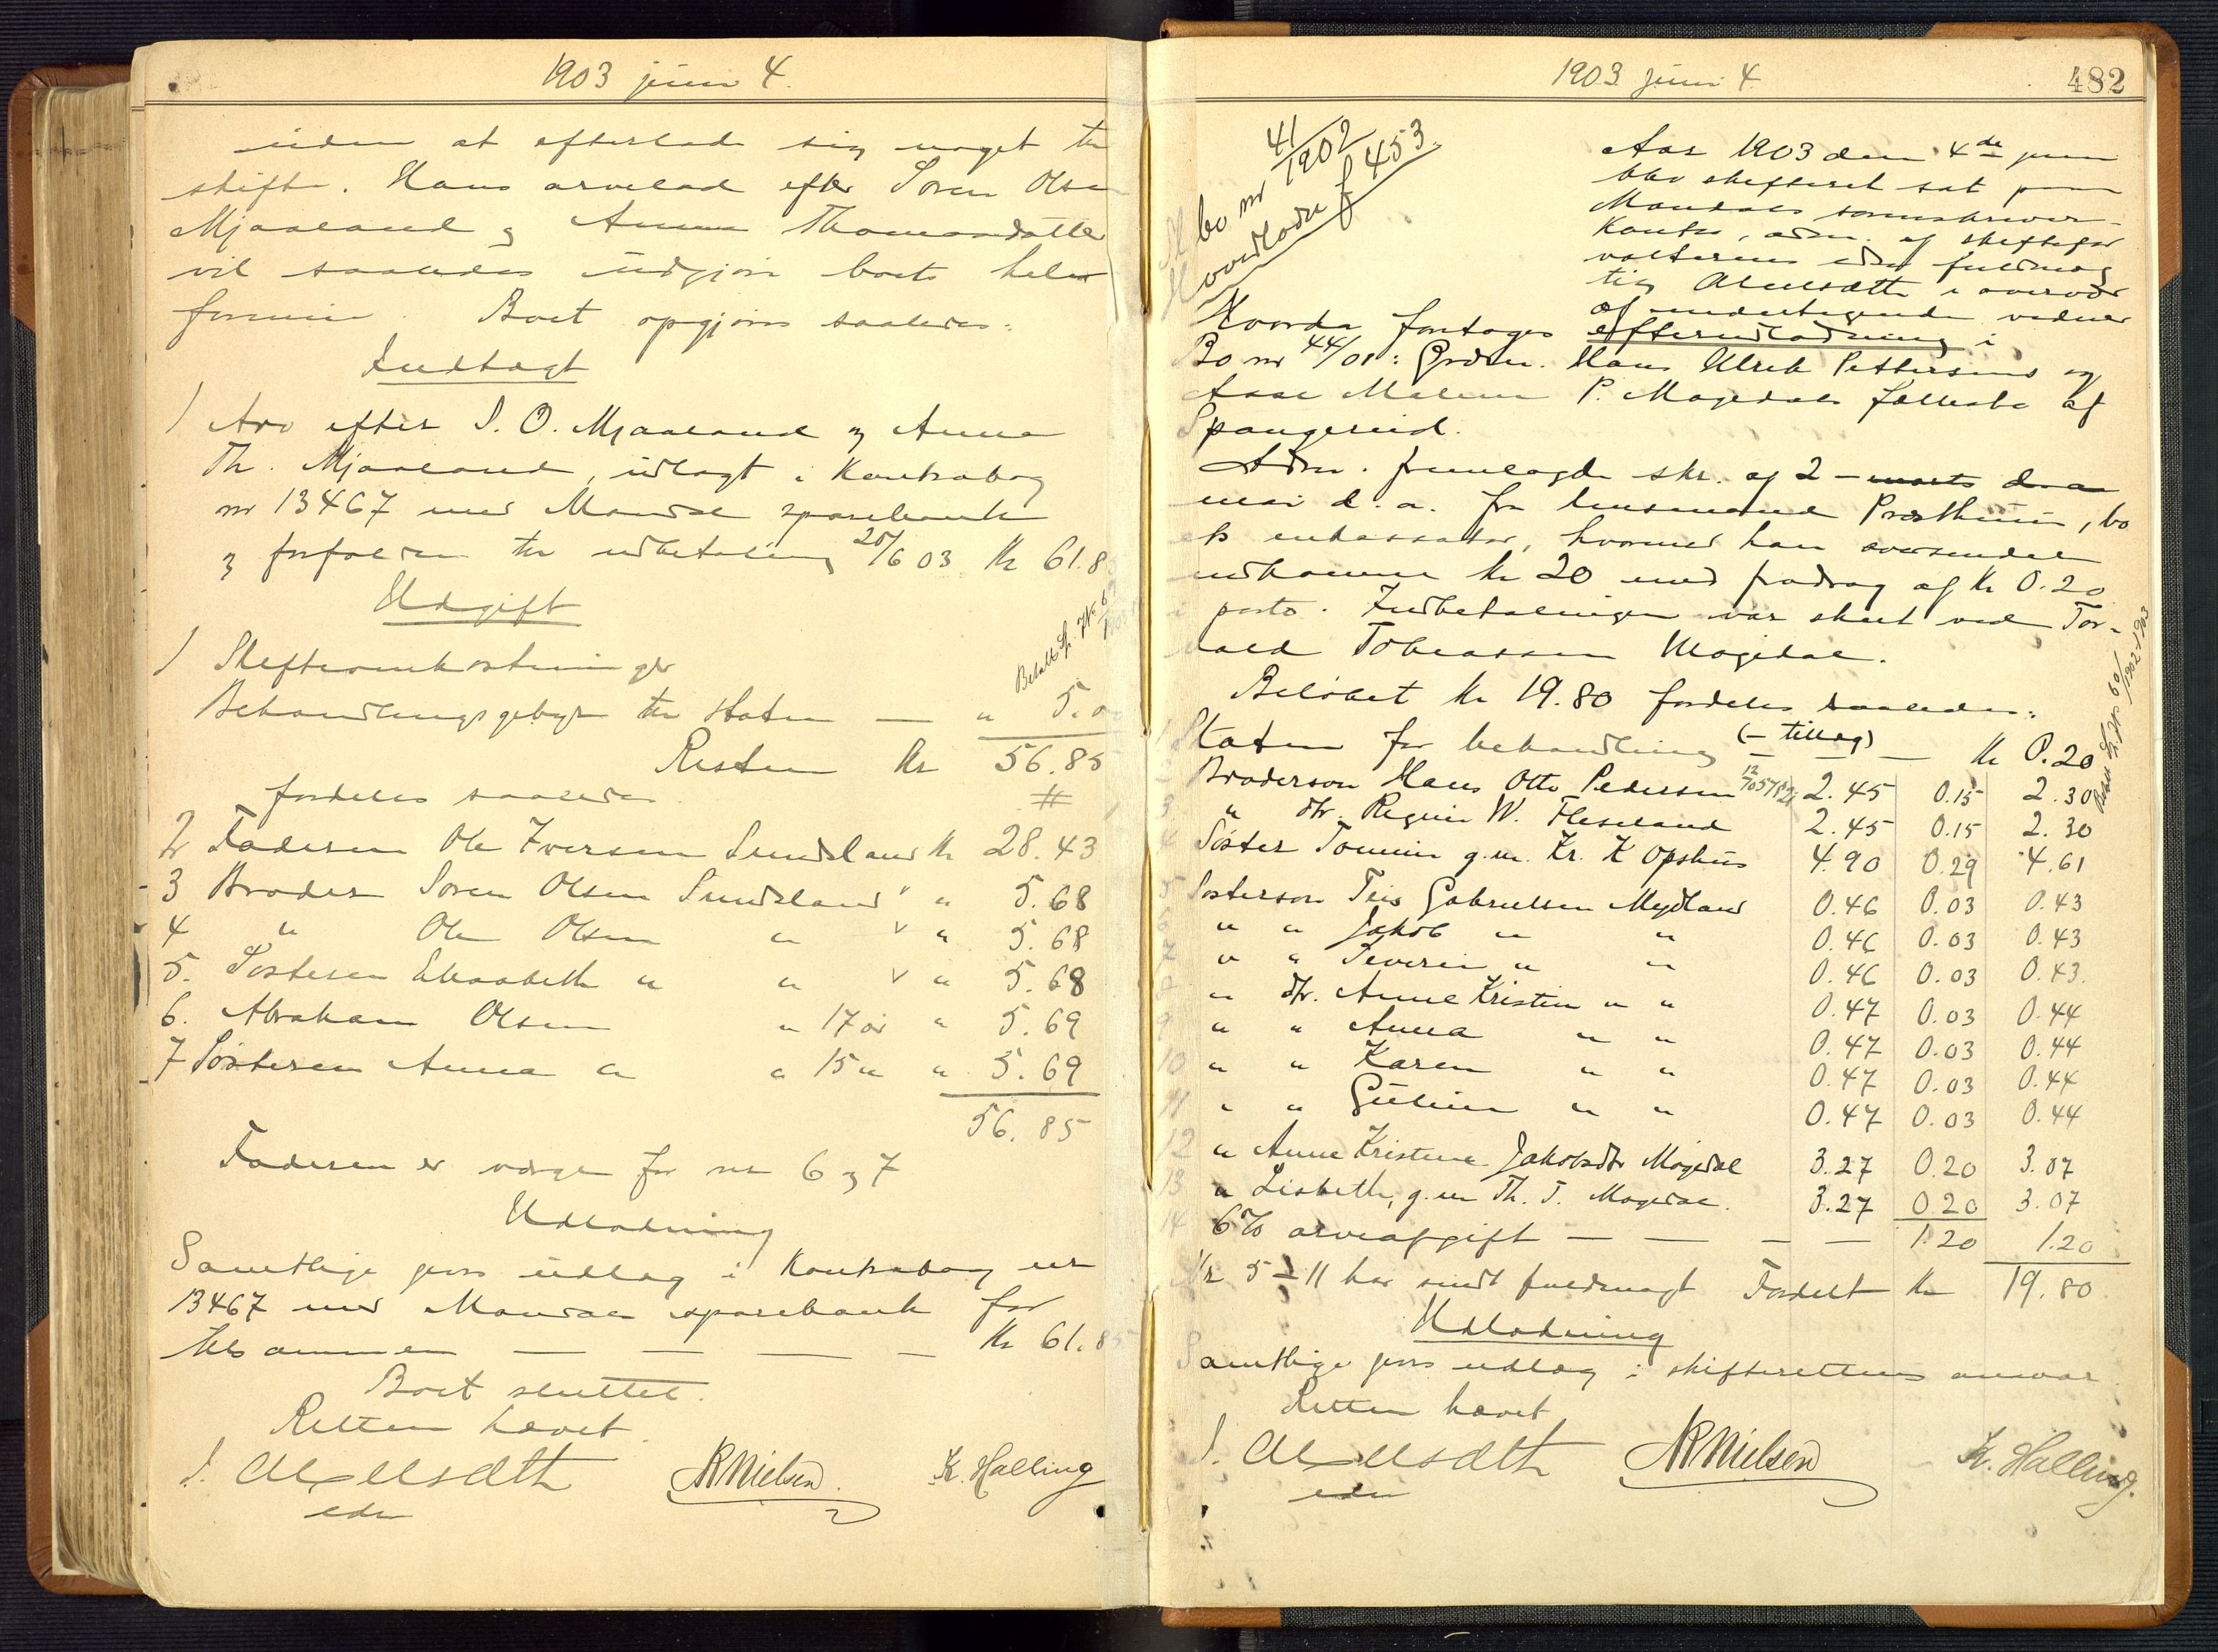 1903 juni 4.
uden at efterlade sig noget til
skifte. Hans arvelod efter Søren Olsen
Mjaaland og Anna Thomasdatter
vil saaledes udgjøre boets hele
formue. Boet opgjøres saaledes:
Indtægt
1 Arv efter S. O. Mjaaland og Anna
Th. Mjaaland, udlagt i Kontrabog
nr 13467 med Mandal sparebank
og forfalden til udbetaling 20/6 03 Kr 61.8
Udgift
Betalt
1 Skifteomkostninger
Behandlingsgebyr til Staten — " 5.00
Resten Kr 56.85
fordeles saaledes
2 Faderen Ole Iversen Sundsland Kr 28.43
3 Broder Søren Olsen Sundsland " " 5.68
4 " Ole Olsen " v " 5.68
5. Søsteren Elisabeth " " v " 5.68
6. Abraham Olsen " 17 år " 5.69
7 Søsteren Anna " " 15 " " 5.69
56.85
Faderen er værge for nr 6 og 7
Udlodning
Samtlige gives udlæg i Kontrabog nr
13467 med Mandal sparebank for
tilsammen — — — — Kr 61.85
Boet sluttet.
Retten hævet.
J. Axelsdth NRNielsen. K. Halling
edv
1903 juni 4.
482
bo nr 41/1902
overlodn f 453.
Aar 1903 den 4de juni
blev skifteret sat paa
Mandals sorenskriver-
kontor, adm. af skiftefor
valterens edsv. fuldmæg
tig Axelsdth i overvær
af undertegnede vidner
Hvorda foretoges efterudlodning i
Bo nr 44/01: Grdm. Hans Ulrik Pettersens og
Aase Malene P. Møgedals fællesbo af
Spangereid.
Adm. fremlagde skr. af 2 – marts d. a
mai d. a. fra lensmand Præsthuus, bo
ets inkassator, hvormed han oversender
indkomne kr 20 med fradrag af Kr 0.20
i porto. Indbetalingen var skeet ved Tor-
vald Tobiassen Møgedal.
Beløbet Kr 19.80 fordeles saaledes:
1 Staten for behandling (– tillæg) — Kr 0.20
2 Broderson Hans Otto Pedersen 2.45 0.15 2.30
3 " dtr. Regine W. Fleseland 2.45 0.15 2.30
4 Søster Tomine g.m. Kr. K Opshus 4.90 0.29 4.61
5 Søsterson Teis Gabrielsen Mydland 0.46 0.03 0.43
6 " " Jakob " " 0.46 0.03 0.43
7 " " Severin " " 0.46 0.03 0.43.
8 " dtr. Anne Kristin " " 0.47 0.03 0.44
9 " " Anna " " 0.47 0.03 0.44
10 " " Karen " " 0.47 0.03 0.44
11 " " Guline " " 0.47 0.03 0.44
12 " Anne Kristine Jakobsdtr Møgedal 3.27 0.20 3.07
13 " Lisbeth, g.m Th. T. Møgedal. 3.27 0.20 3.07
14 6% arveafgift — — — — 1.20 1.20
Nr 5 – 11 har sendt fuldmagt Fordelt Kr 19.80
Udlodning
Samtlige gives udlæg i skifterettens ansvar
Retten hævet
J. Axelsdth NRNielsen K. Halling.
edv